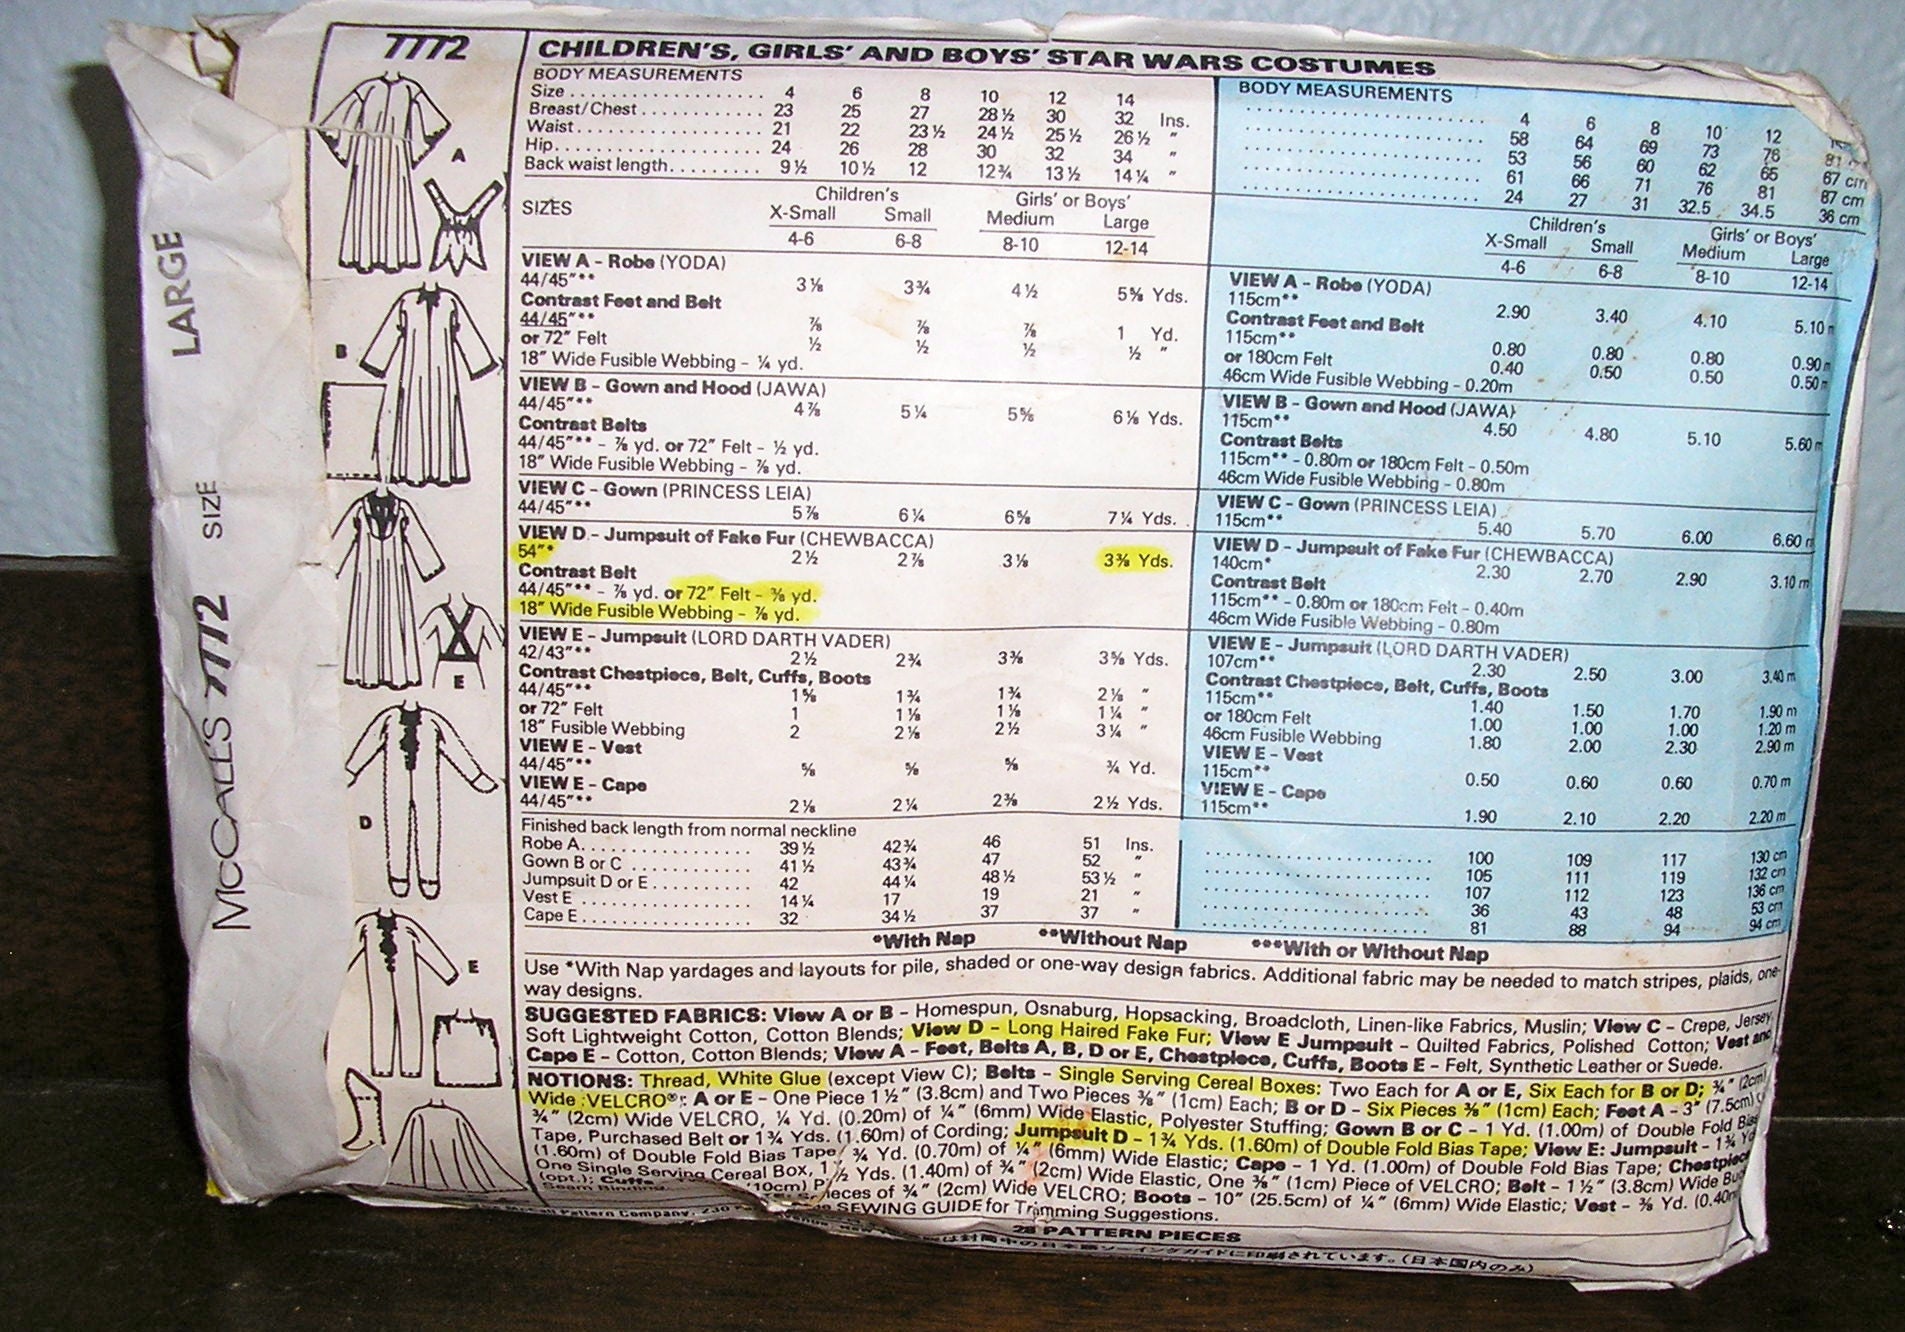 7772
A
B
E
D
E
McCALL'S 7772 SIZE LARGE
CHILDREN'S, GIRLS' AND BOYS' STAR WARS COSTUMES
BODY MEASUREMENTS
Size 4 6 8 10 12 14
Breast/Chest 23 25 27 28 ½ 30 32 Ins.
Waist 21 22 23 ½ 24 ½ 25 ½ 26 ½ "
Hip 24 26 28 30 32 34 "
Back waist length 9 ½ 10 ½ 12 12 ¾ 13 ½ 14 ¼ "
Children's Girls' or Boys'
SIZES X-Small Small Medium Large
4-6 6-8 8-10 12-14
VIEW A - Robe (YODA)
44/45"** 3 ⅛ 3 ¾ 4 ½ 5 ⅝ Yds.
Contrast Feet and Belt
44/45"** ⅞ ⅞ ⅞ 1 Yd.
or 72" Felt ½ ½ ½ ½ "
18" Wide Fusible Webbing - ¼ yd.
VIEW B - Gown and Hood (JAWA)
44/45"** 4 ⅞ 5 ¼ 5 ⅝ 6 ⅛ Yds.
Contrast Belts
44/45"** - ⅞ yd. or 72" Felt - ½ yd.
18" Wide Fusible Webbing - ⅞ yd.
VIEW C - Gown (PRINCESS LEIA)
44/45"** 5 ⅞ 6 ¼ 6 ⅝ 7 ¼ Yds.
VIEW D - Jumpsuit of Fake Fur (CHEWBACCA)
54"* 2 ½ 2 ⅞ 3 ⅛ 3 ⅜ Yds.
Contrast Belt
44/45"** - ⅞ yd. or 72" Felt - ⅜ yd.
18" Wide Fusible Webbing - ⅞ yd.
VIEW E - Jumpsuit (LORD DARTH VADER)
42/43"** 2 ½ 2 ¾ 3 ⅜ 3 ⅝ Yds.
Contrast Chestpiece, Belt, Cuffs, Boots
44/45"** 1 ⅝ 1 ¾ 1 ¾ 2 ⅛ "
or 72" Felt 1 1 ⅛ 1 ⅛ 1 ¼ "
18" Fusible Webbing 2 2 ⅛ 2 ½ 3 ¼ "
VIEW E - Vest
44/45"** ⅝ ⅝ ⅝ ¾ Yd.
VIEW E - Cape
44/45"** 2 ⅛ 2 ¼ 2 ⅜ 2 ½ Yds.
Finished back length from normal neckline
Robe A 39 ½ 42 ¾ 46 51 Ins.
Gown B or C 41 ½ 43 ¾ 47 52 "
Jumpsuit D or E 42 44 ¼ 48 ½ 53 ½ "
Vest E 14 ¼ 17 19 21 "
Cape E 32 34 ½ 37 37 "
BODY MEASUREMENTS
4 6 8 10 12
58 64 69 73 76 81
53 56 60 62 65 67 cm
61 66 71 76 81 87 cm
24 27 31 32.5 34.5 36 cm
Children's Girls' or Boys'
X-Small Small Medium Large
4-6 6-8 8-10 12-14
VIEW A - Robe (YODA)
115cm** 2.90 3.40 4.10 5.10 m
Contrast Feet and Belt
115cm** 0.80 0.80 0.80 0.90 m
or 180cm Felt 0.40 0.50 0.50 0.50 m
46cm Wide Fusible Webbing - 0.20m
VIEW B - Gown and Hood (JAWA)
115cm** 4.50 4.80 5.10 5.60 m
Contrast Belts
115cm** - 0.80m or 180cm Felt - 0.50m
46cm Wide Fusible Webbing - 0.80m
VIEW C - Gown (PRINCESS LEIA)
115cm** 5.40 5.70 6.00 6.60 m
VIEW D - Jumpsuit of Fake Fur (CHEWBACCA)
140cm* 2.30 2.70 2.90 3.10 m
Contrast Belt
115cm** - 0.80m or 180cm Felt - 0.40m
46cm Wide Fusible Webbing - 0.80m
VIEW E - Jumpsuit (LORD DARTH VADER)
107cm** 2.30 2.50 3.00 3.40 m
Contrast Chestpiece, Belt, Cuffs, Boots
115cm** 1.40 1.50 1.70 1.90 m
or 180cm Felt 1.00 1.00 1.00 1.20 m
46cm Fusible Webbing 1.80 2.00 2.30 2.90 m
VIEW E - Vest
115cm** 0.50 0.60 0.60 0.70 m
VIEW E - Cape
115cm** 1.90 2.10 2.20 2.20 m
100 109 117 130 cm
105 111 119 132 cm
107 112 123 136 cm
36 43 48 53 cm
81 88 94 94 cm
*With Nap **Without Nap ***With or Without Nap
Use *With Nap yardages and layouts for pile, shaded or one-way design fabrics. Additional fabric may be needed to match stripes, plaids, one-
way designs.
SUGGESTED FABRICS: View A or B - Homespun, Osnaburg, Hopsacking, Broadcloth, Linen-like Fabrics, Muslin; View C - Crepe, Jersey,
Soft Lightweight Cotton, Cotton Blends; View D - Long Haired Fake Fur; View E Jumpsuit - Quilted Fabrics, Polished Cotton; Vest and
Cape E - Cotton, Cotton Blends; View A - Feet, Belts A, B, D or E, Chestpiece, Cuffs, Boots E - Felt, Synthetic Leather or Suede.
NOTIONS: Thread, White Glue (except View C); Belts - Single Serving Cereal Boxes: Two Each for A or E, Six Each for B or D; ¾" (2cm)
Wide VELCRO®: A or E - One Piece 1 ½" (3.8cm) and Two Pieces ⅜" (1cm) Each; B or D - Six Pieces ⅜" (1cm) Each; Feet A - 3" (7.5cm)
¾" (2cm) Wide VELCRO, ¼ Yd. (0.20m) of ¼" (6mm) Wide Elastic, Polyester Stuffing; Gown B or C - 1 Yd. (1.00m) of Double Fold Bias
Tape, Purchased Belt or 1 ¾ Yds. (1.60m) of Cording; Jumpsuit D - 1 ¾ Yds. (1.60m) of Double Fold Bias Tape; View E: Jumpsuit - 1 ¾ Yd
(1.60m) of Double Fold Bias Tape, ¾ Yd. (0.70m) of ¼" (6mm) Wide Elastic; Cape - 1 Yd. (1.00m) of Double Fold Bias Tape; Chestpiece
One Single Serving Cereal Box, 1 ½ Yds. (1.40m) of ¾" (2cm) Wide Elastic, One ⅜" (1cm) Piece of VELCRO; Belt - 1 ½" (3.8cm) Wide
(opt.); Cuffs (10cm) Pieces of ¾" (2cm) Wide VELCRO; Boots - 10" (25.5cm) of ¼" (6mm) Wide Elastic; Vest - ⅜ Yd. (0.40m
Seam Binding. SEWING GUIDE for Trimming Suggestions.
Pattern Company, 28 PATTERN PIECES
は封筒中の日本語ソーイングガイドに印刷されています。(日本国内のみ)